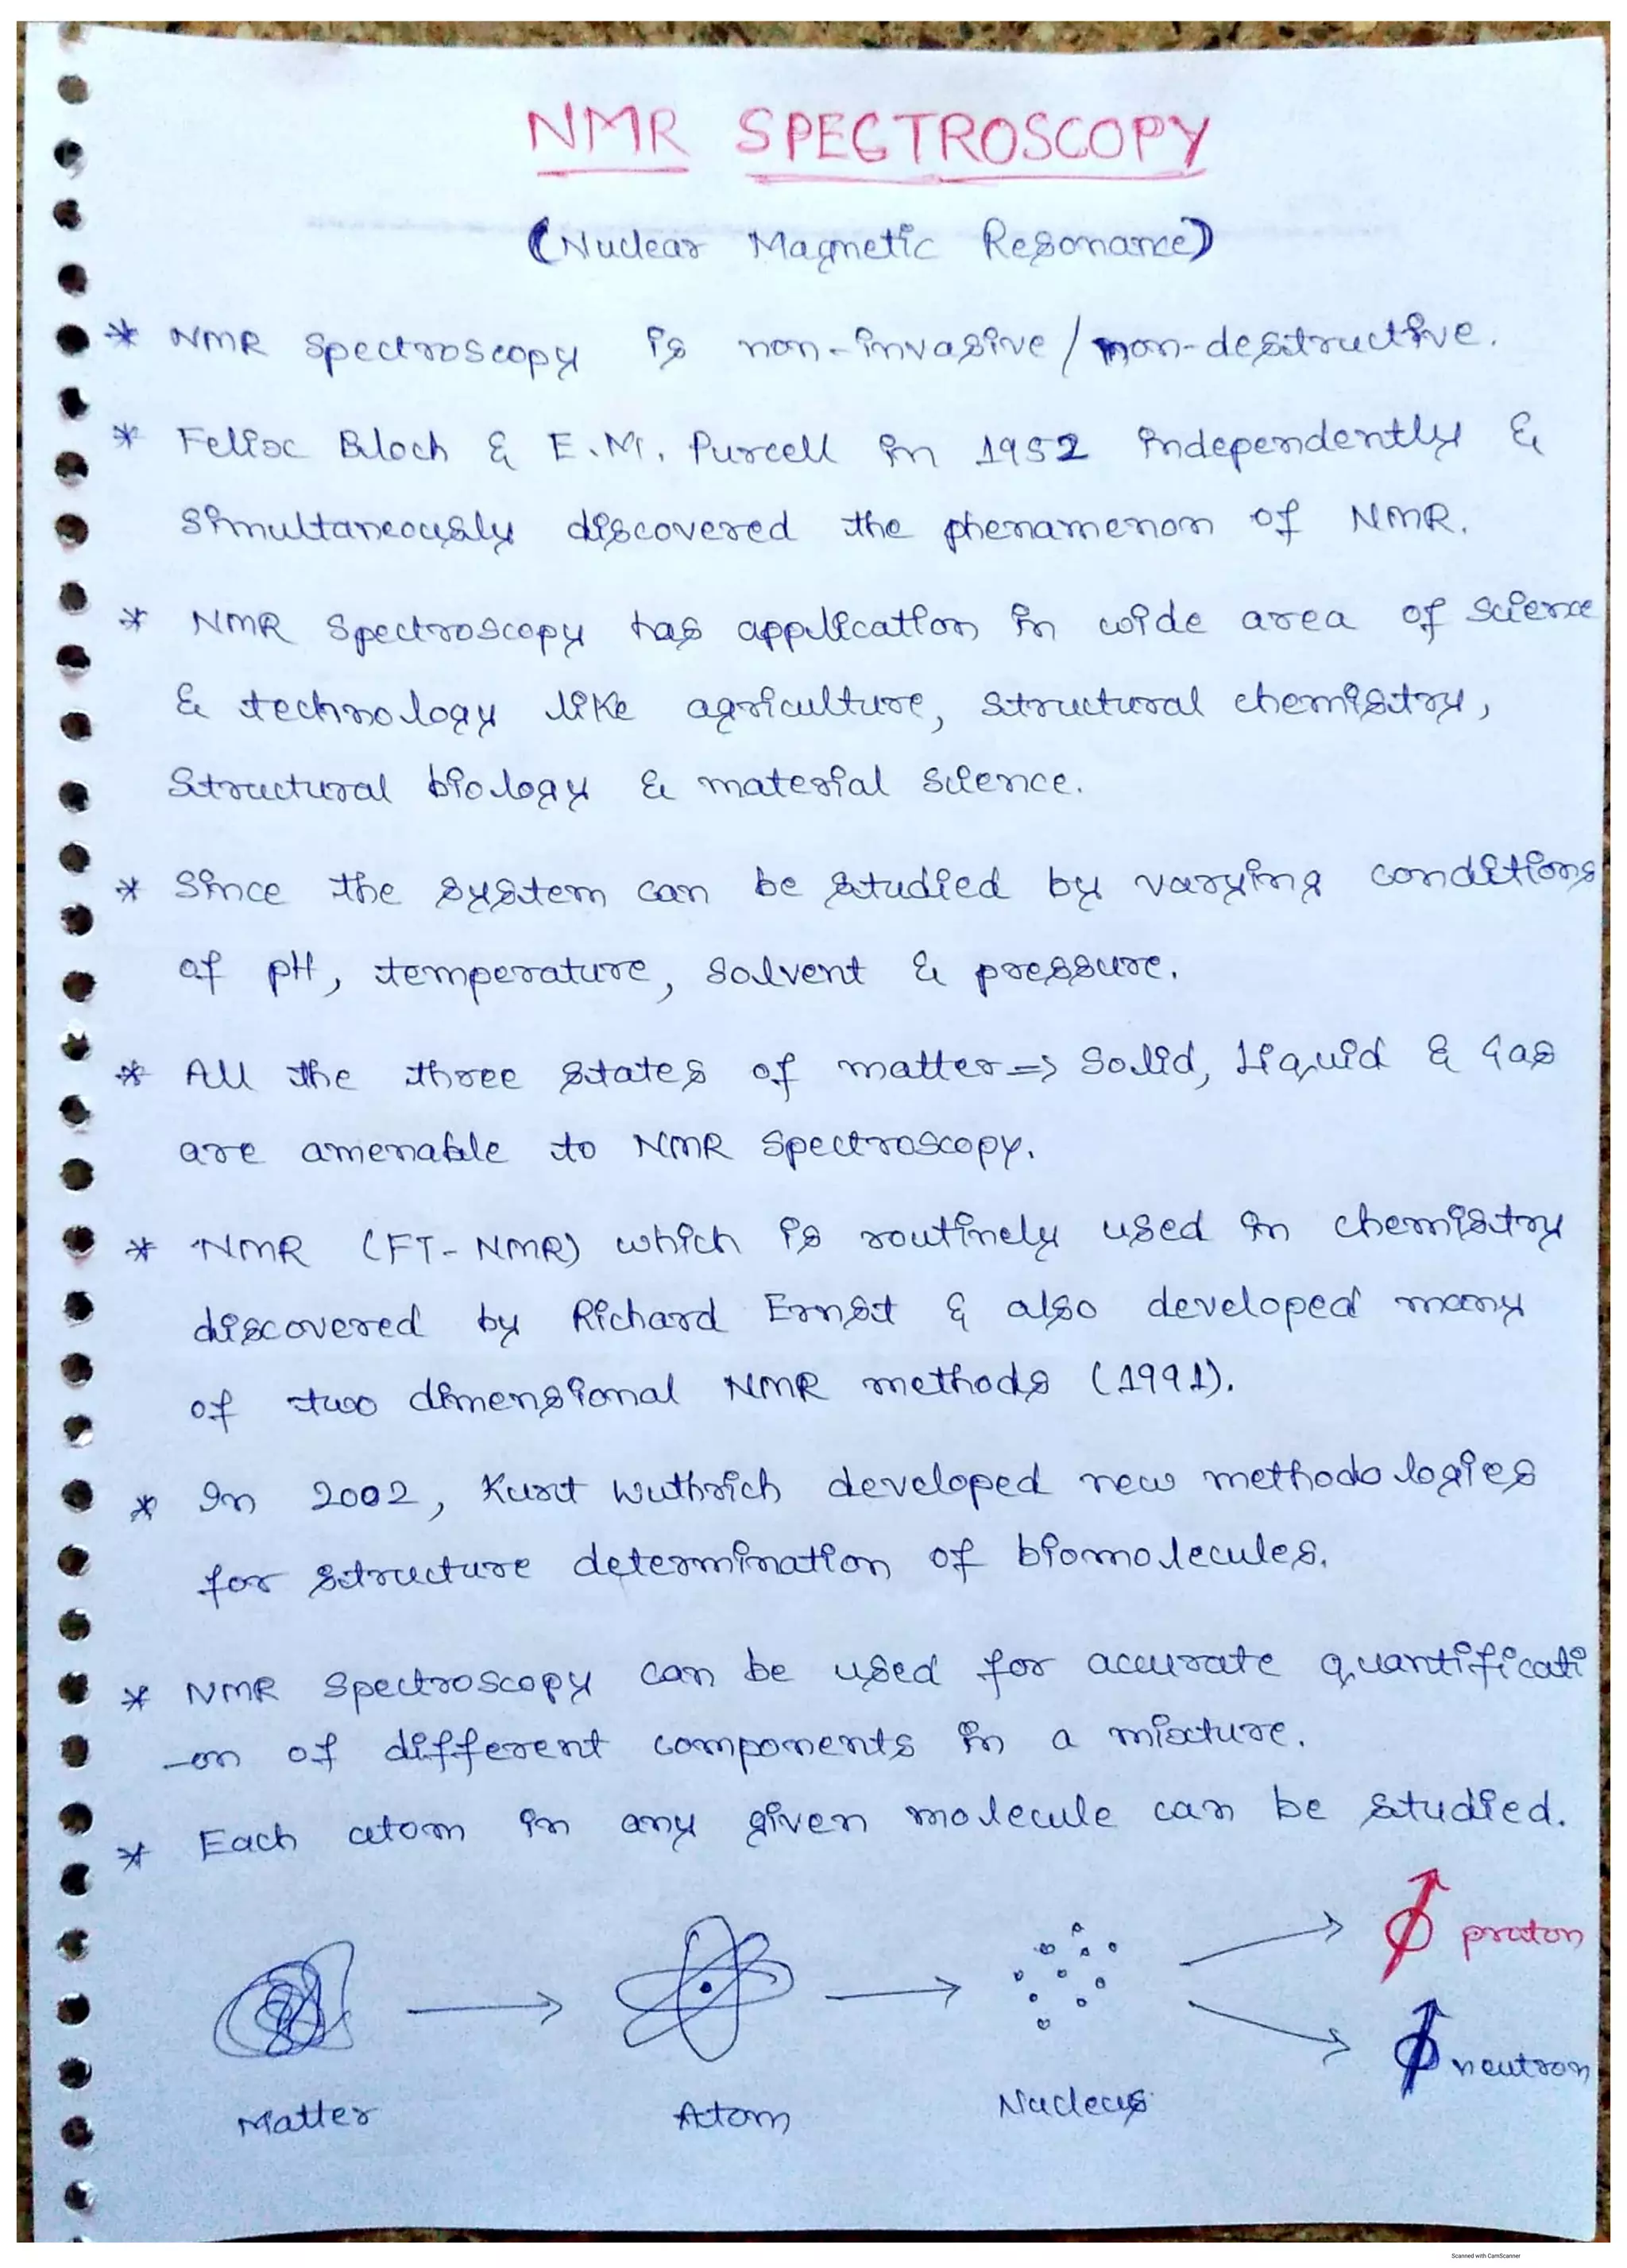 NMR SPECTROSCOPY
(Nuclear Magnetic Resonance)
* NMR spectroscopy is non-invasive/non-destructive.
* Felix Bloch & E.M. Purcell in 1952 independently &
simultaneously discovered the phenamenon of NMR.
* NMR spectroscopy has application in wide area of science
& technology like agriculture, structural chemistry,
structural biology & material science.
* Since the system can be studied by varying conditions
of pH, temperature, solvent & pressure.
* All the three states of matter => Solid, Liquid & Gas
are amenable to NMR spectroscopy.
* NMR (FT-NMR) which is routinely used in chemistry
discovered by Richard Ernst & also developed many
of two dimensional NMR methods (1991).
* In 2002, Kurt Wuthrich developed new methodologies
for structure determination of biomolecules.
* NMR spectroscopy can be used for accurate quantificati
-on of different components in a mixture.
* Each atom in any given molecule can be studied.
proton
neutron
Matter Atom Nucleus
Scanned with CamScanner